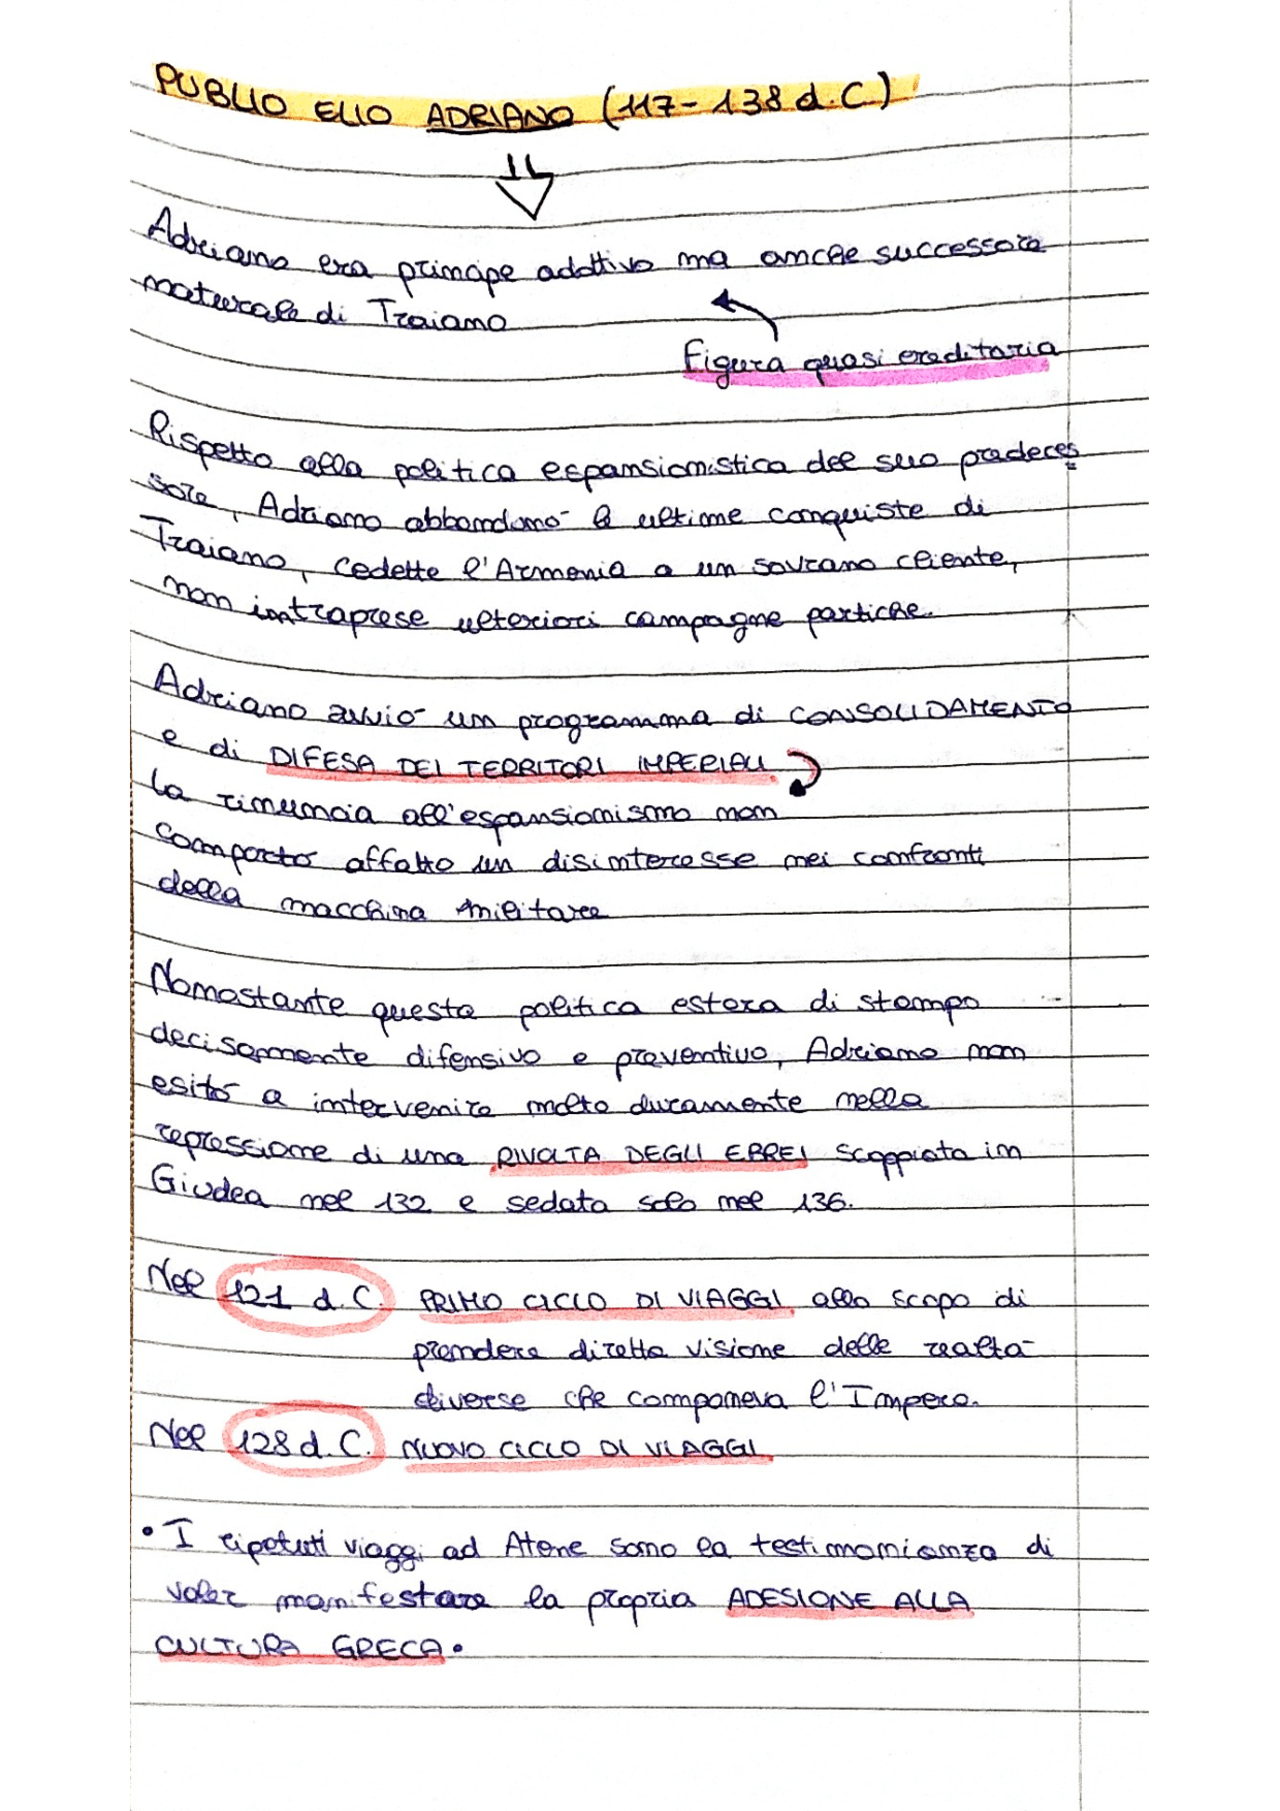 PUBLIO ELIO ADRIANO (117-138 d.C.)
Adriano era principe adottivo ma anche successore
naturale di Traiano
Figura quasi ereditaria
Rispetto alla politica espansionistica del suo predeces
sore, Adriano abbandonò le ultime conquiste di
Traiano, cedette l'Armenia a un sovrano cliente,
non intraprese ulteriori campagne partiche.
Adriano avviò un programma di CONSOLIDAMENTO
e di DIFESA DEI TERRITORI IMPERIALI
la rinuncia all'espansionismo non
comportò affatto un disinteresse nei confronti
della macchina militare
Nonostante questa politica estera di stampo
decisamente difensivo e preventivo, Adriano non
esitò a intervenire molto duramente nella
repressione di una RIVOLTA DEGLI EBREI scoppiata in
Giudea nel 132 e sedata solo nel 136.
Nel 121 d.C. PRIMO CICLO DI VIAGGI allo scopo di
prendere diretta visione delle realtà
diverse che componeva l'Impero.
Nel 128 d.C. NUOVO CICLO DI VIAGGI
• I ripetuti viaggi ad Atene sono la testimonianza di
voler manifestare la propria ADESIONE ALLA
CULTURA GRECA.